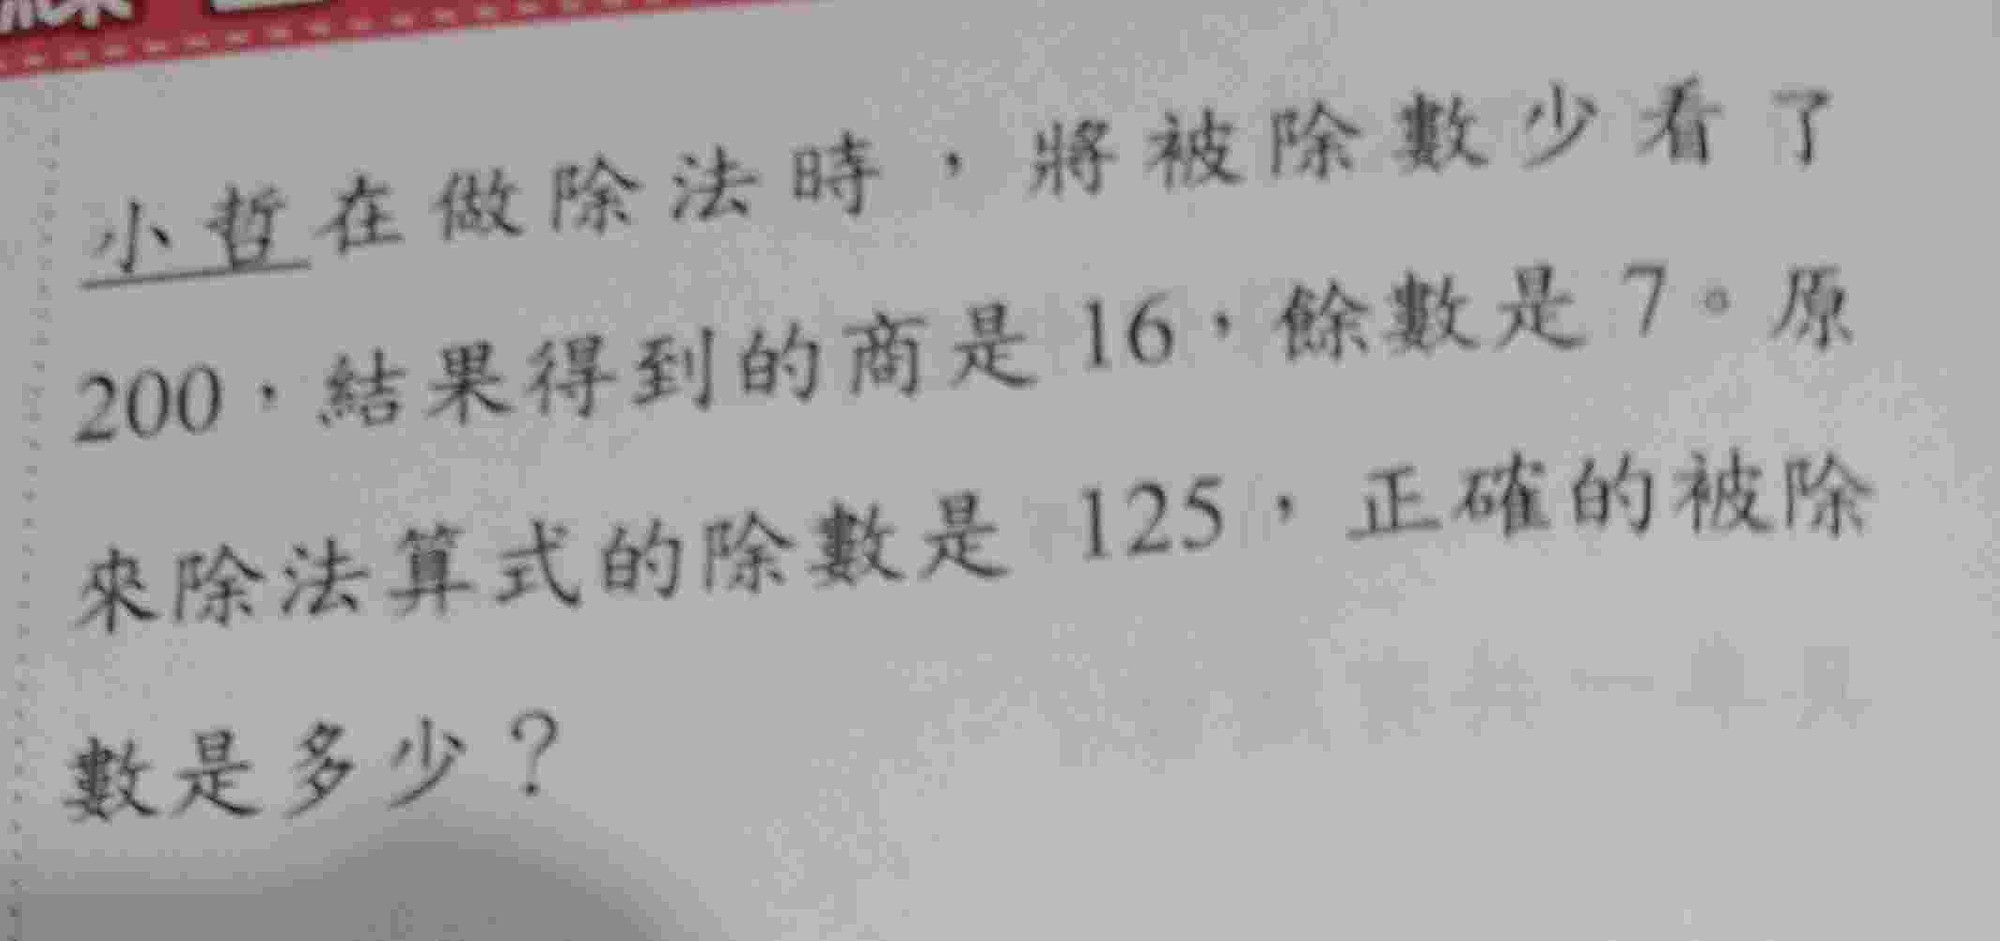 小哲在做除法時，將被除數少看了
200，結果得到的商是 16，餘數是 7。原
來除法算式的除數是 125，正確的被除
數是多少？